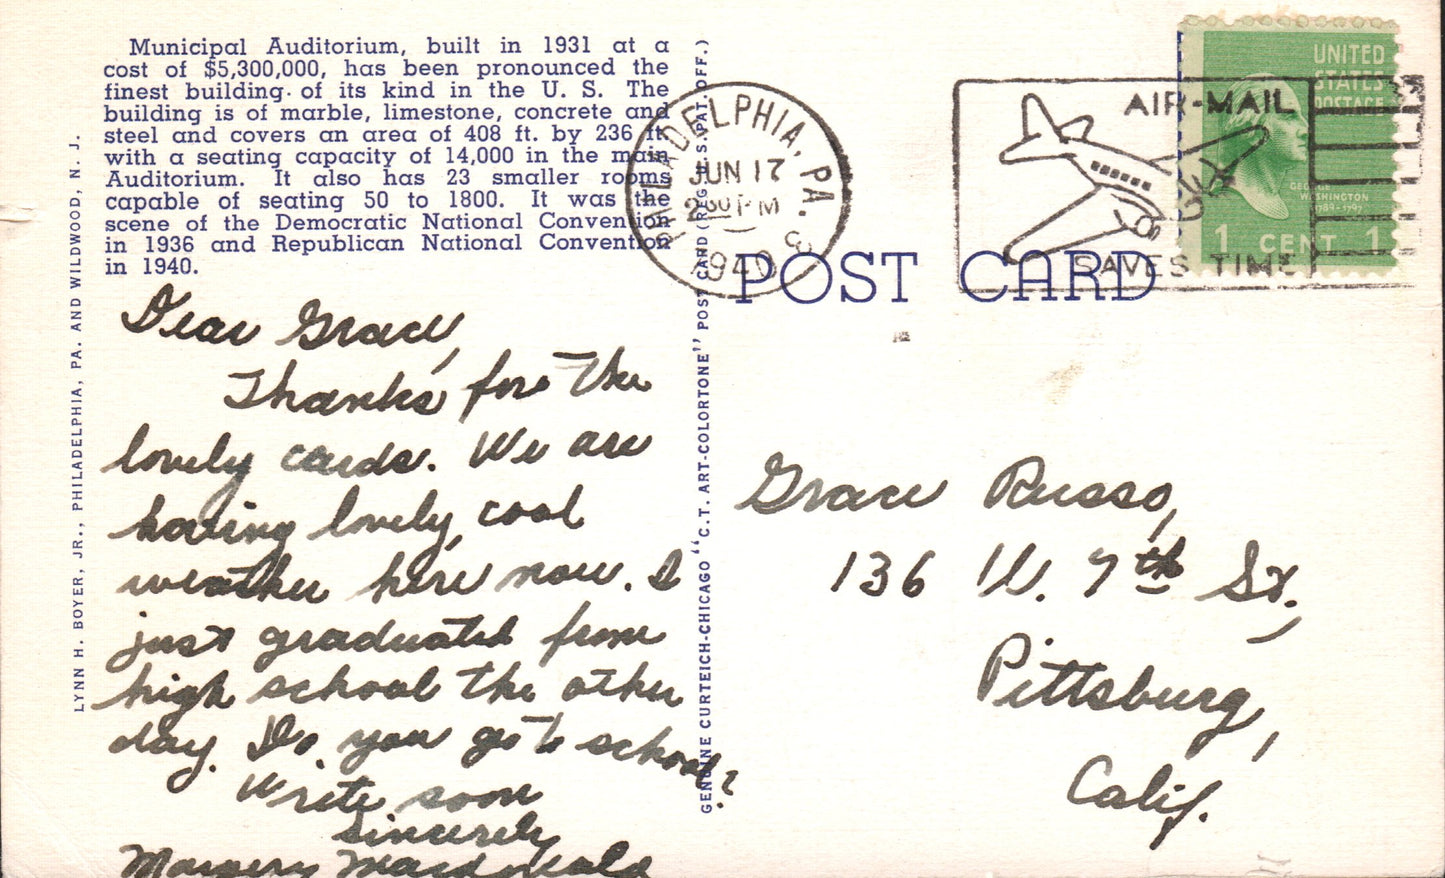 Municipal Auditorium, built in 1931 at a
cost of $5,300,000, has been pronounced the
finest building of its kind in the U. S. The
building is of marble, limestone, concrete and
steel and covers an area of 408 ft. by 236 ft.
with a seating capacity of 14,000 in the main
Auditorium. It also has 23 smaller rooms
capable of seating 50 to 1800. It was the
scene of the Democratic National Convention
in 1936 and Republican National Convention
in 1940.
LYNN H. BOYER, JR., PHILADELPHIA, PA. AND WILDWOOD, N. J.
Dear Grace,
Thanks for the
lovely cards. We are
having lovely, cool
weather here now. I
just graduated from
high school the other
day. Do you go to school?
Write soon
Sincerely
Margery Macdonald
GENUINE CURTEICH-CHICAGO "C.T. ART-COLORTONE" POST CARD (REG. U.S. PAT. OFF.)
PHILADELPHIA, PA.
JUN 17
2 30 PM
1940
AIR-MAIL
SAVES TIME
UNITED
STATES
POSTAGE
GEORGE
WASHINGTON
1789-1797
1 CENT 1
POST CARD
Grace Russo,
136 W. 7th St.,
Pittsburg,
Calif.